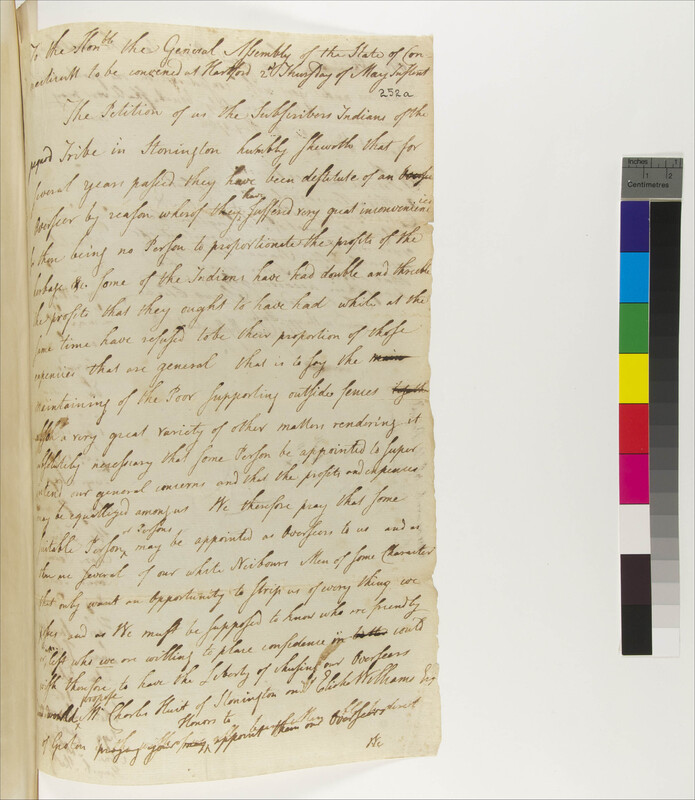 To the Honble the General Assembly of the State of Con-
necticutt to be convened at Hartford 2d Thursday of May Instant
252a
The Petition of us the Subscribers Indians of the
pequod Tribe in Stonington humbly sheweth that for
several years passed they have been destitute of an Oversee
Overseer by reason whereof they have suffered very great inconveniencies
there being no Person to proportionate the profits of the
herbage &c some of the Indians have had double and threble
the profits that they ought to have had while at the
same time have refused to be their proportion of those
expencies that are general that is to say the main
maintaining of the Poor supporting outside fences
with a very great variety of other matters rendering it
absolutely necessary that some Person be appointed to super
intend our general concerns and that the profits and expences
may be equallized among us We therefore pray that some
suitable Person or Persons may be appointed as Overseers to us and as
there are several of our white Neibours Men of some Character
that only want an opportunity to strip us of every thing we
and as We must be supposed to know who are friendly
who we are willing to place confidence in could
wish therefore to have the Liberty of chusing our Overseers
and would propose Mr Charles Hunt of Stonington and Elisha Williams Esq
of Groton praying your Honors to appoint them our Overseers
We